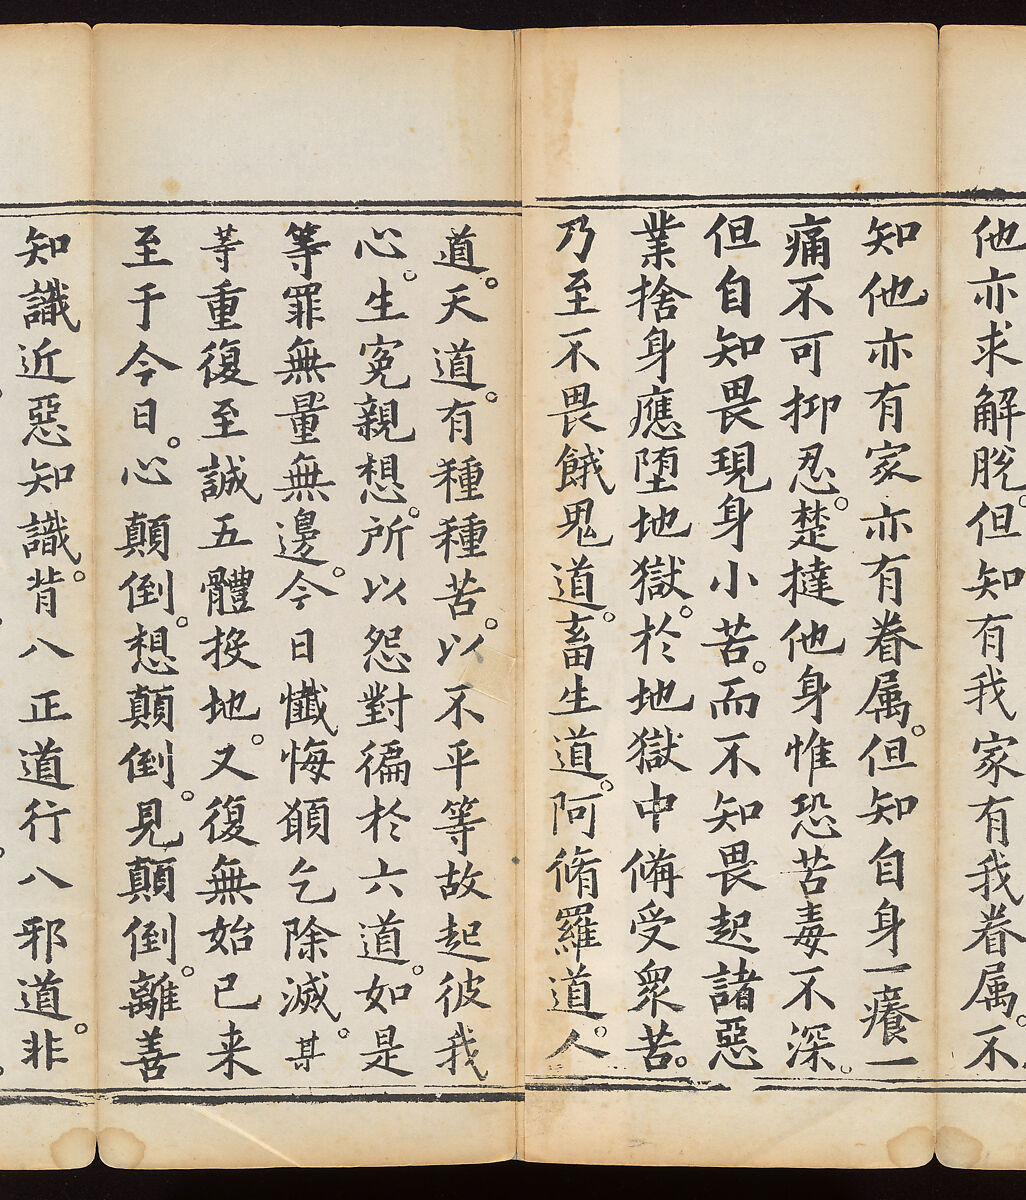 他亦求解脫。但知有我家有我眷属。不
知他亦有家亦有眷属。但知自身一癢一
痛不可抑忍。楚撻他身惟恐苦毒不深。
但自知畏現身小苦。而不知畏起諸惡
業捨身應堕地獄。於地獄中備受衆苦。
乃至不畏餓鬼道。畜生道。阿脩羅道。人
道。天道。有種種苦。以不平等故起彼我
心。生冤親想。所以怨對徧於六道。如是
等罪無量無邊。今日懺悔願乞除滅。某
等重復至誠五體投地。又復無始已来
至于今日。心顛倒。想顛倒。見顛倒。離善
知識近惡知識。背八正道行八邪道。非